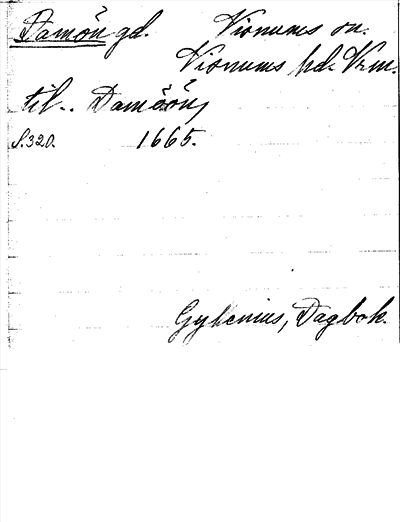 Damön gd. Visnums sn.
Visnums hd. Vrm.
til.. Damöön,
S.320. 1665.
Gyllenius, Dagbok.